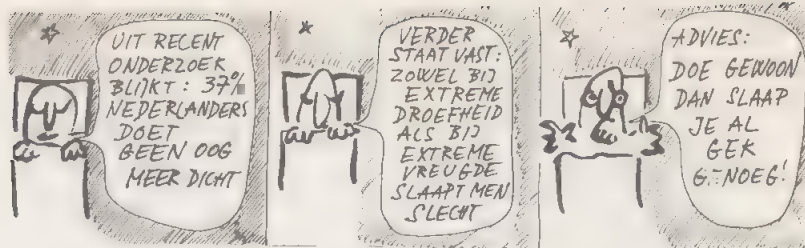 UIT RECENT
ONDERZOEK
BLIJKT: 37%
NEDERLANDERS
DOET
GEEN OOG
MEER DICHT
VERDER
STAAT VAST:
ZOWEL BIJ
EXTREME
DROEFHEID
ALS BIJ
EXTREME
VREUGDE
SLAAPT MEN
SLECHT
ADVIES:
DOE GEWOON
DAN SLAAP
JE AL
GEK
GENOEG!